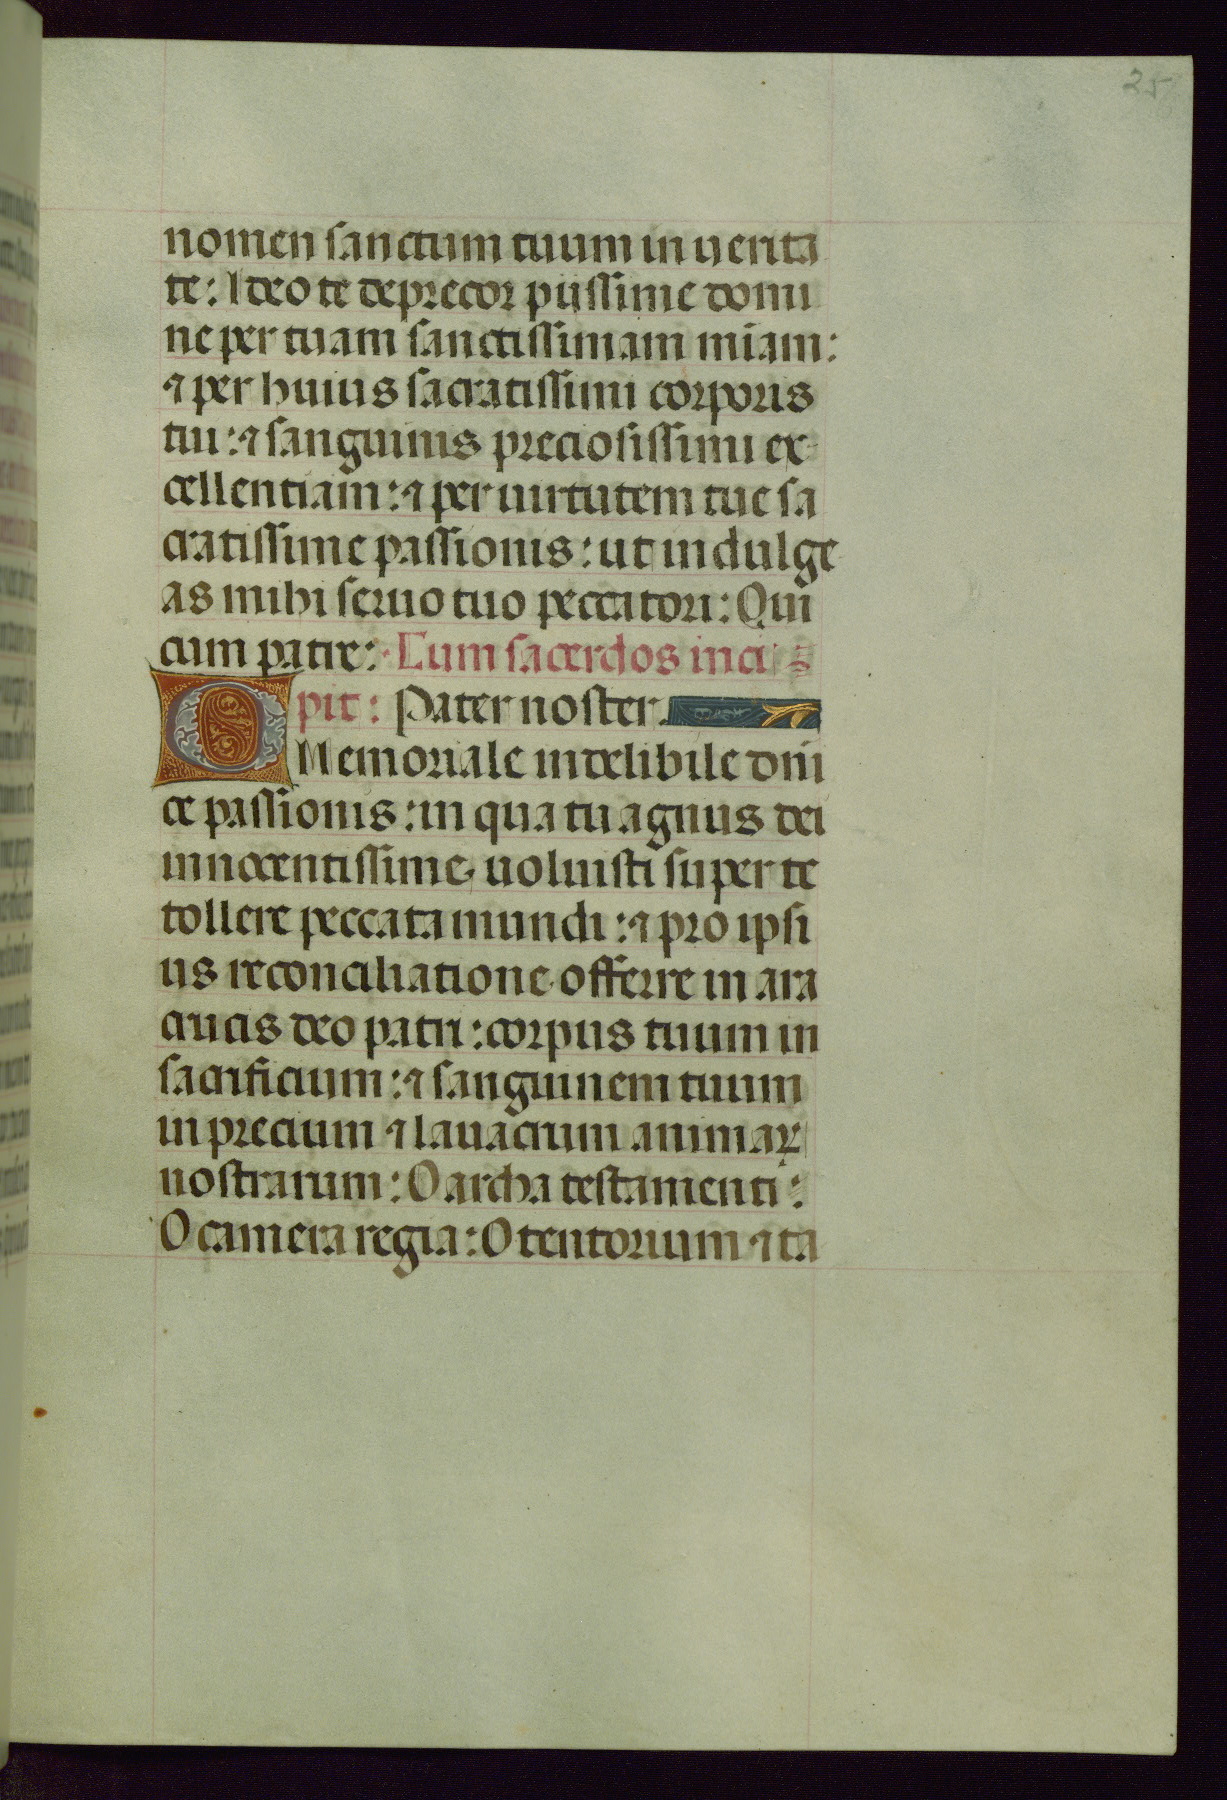 25
nomen sanctum tuum in uerita
te: Ideo te deprecor piissime domi
ne per tuam sanctissimam miam:
⁊ per huius sacratissimi corporis
tui: ⁊ sanguinis preciosissimi ex
cellentiam: ⁊ per uirtutem tue sa
cratissime passionis: ut indulge
as mihi seruo tuo peccatori: Qui
cum patre: Cum sacerdos inci
pit: Pater noster.
O Memoriale indelibile dn̄i
ce passionis: in qua tu agnus dei
innocentissime uoluisti super te
tollere peccata mundi: ⁊ pro ipsi
us reconciliatione offerre in ara
crucis deo patri: corpus tuum in
sacrificium: ⁊ sanguinem tuum
in precium ⁊ lauacrum animaꝝ
nostrarum: O archa testamenti:
O camera regia: O tentorium ⁊ ta